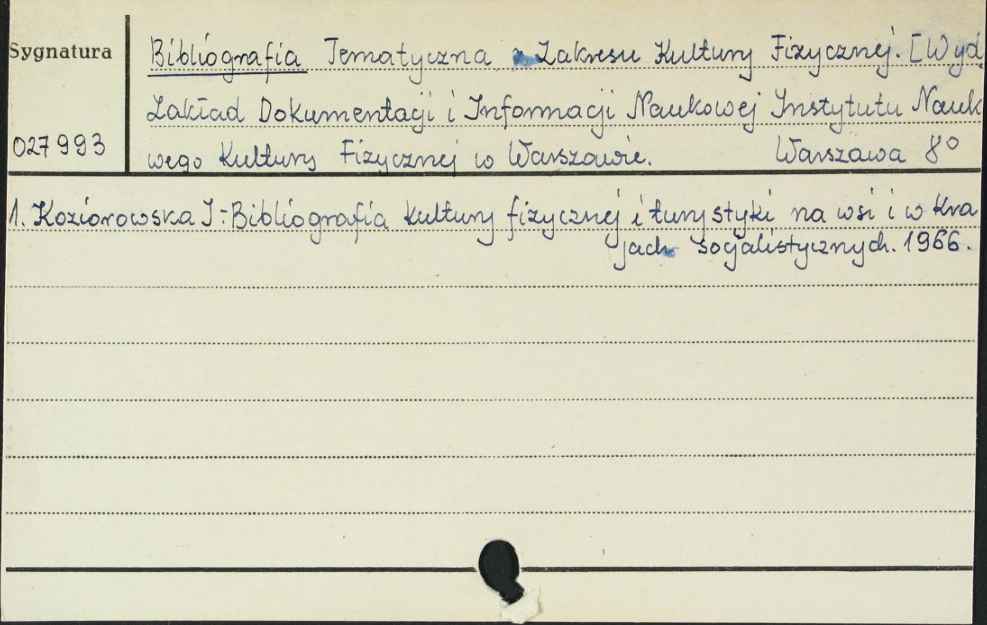 Sygnatura
027993
Bibliografia Tematyczna z Zakresu Kultury Fizycznej. [Wyd
Zakład Dokumentacji i Informacji Naukowej Instytutu Nauk
wego Kultury Fizycznej w Warszawie. Warszawa 8°
1. Koziorowska J.: Bibliografia kultury fizycznej i turystyki na wsi i w kra
jach socjalistycznych. 1966.